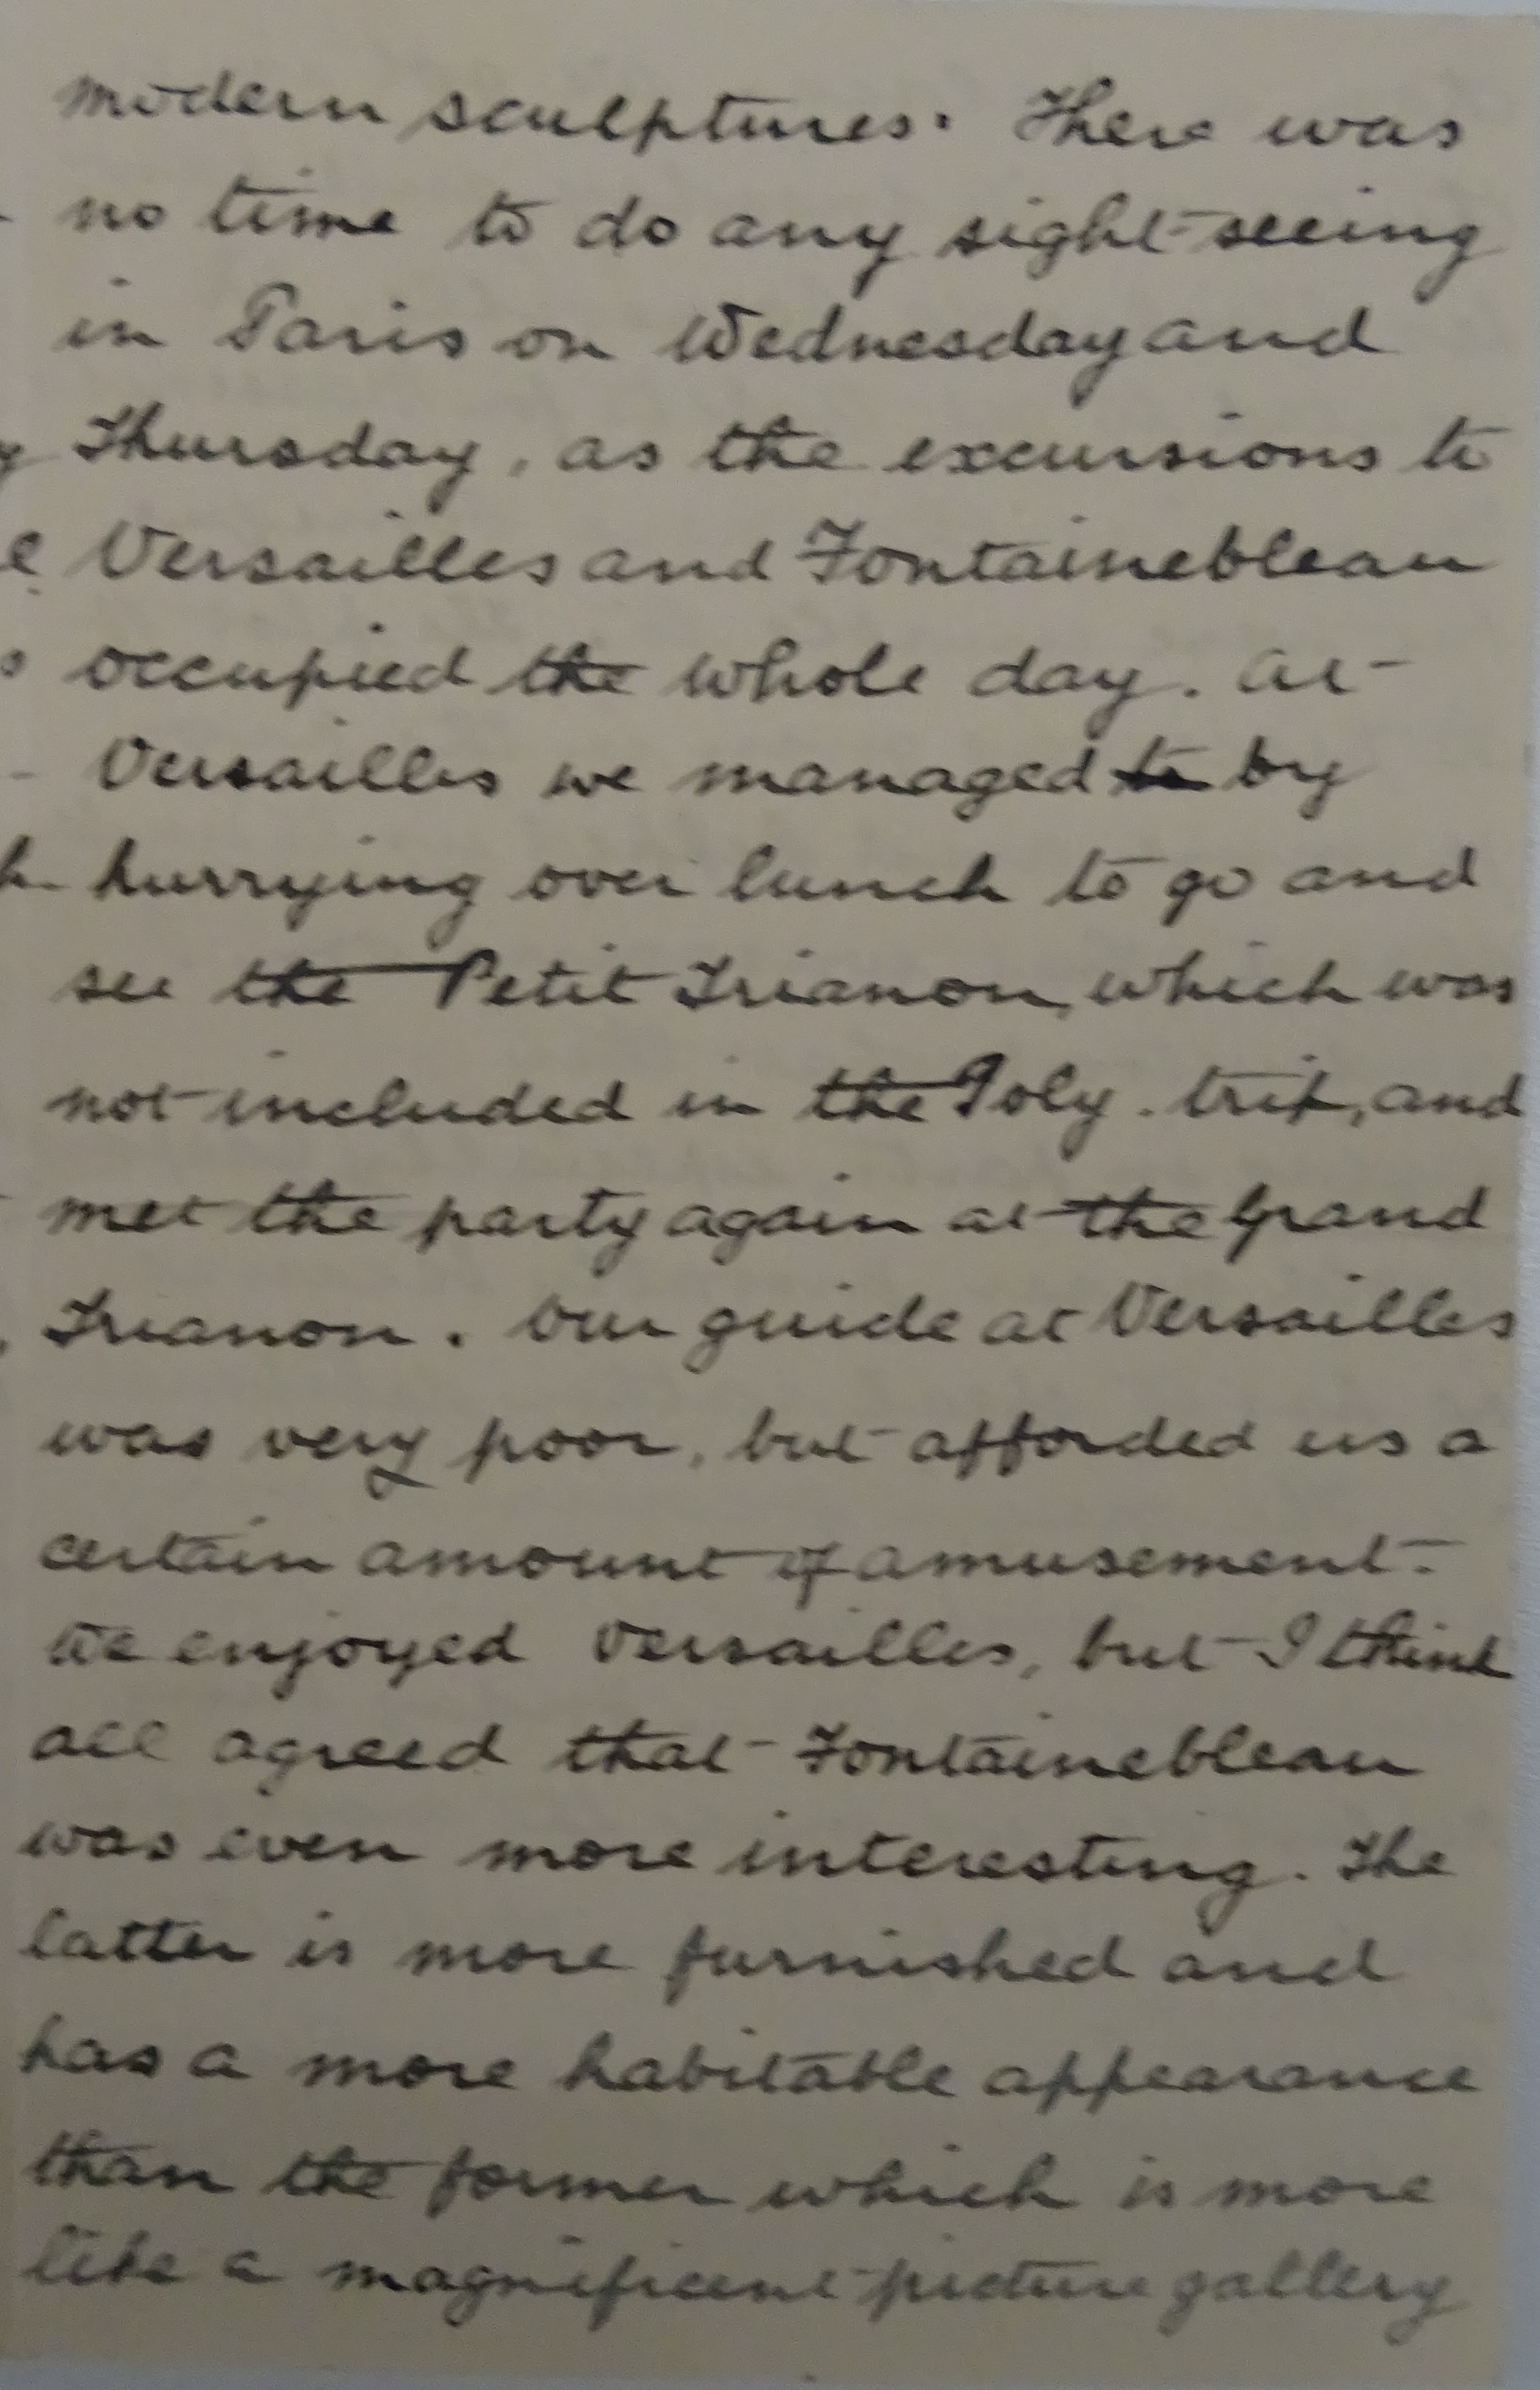 modern sculptures. There was
no time to do any sight-seeing
in Paris on Wednesday and
Thursday, as the excursions to
Versailles and Fontainebleau
occupied the whole day. At
Versailles we managed to by
hurrying over lunch to go and
see the Petit Trianon, which was
not included in the Poly. trip, and
met the party again at the Grand
Trianon. Our guide at Versailles
was very poor, but afforded us a
certain amount of amusement.
We enjoyed Versailles, but I think
all agreed that Fontainebleau
was even more interesting. The
latter is more furnished and
has a more habitable appearance
than the former which is more
like a magnificent picture gallery